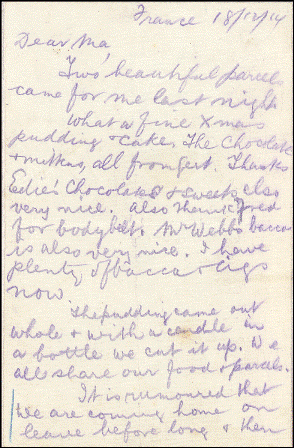 France 18/12/14
Dear Ma,
Two beautiful parcels
came for me last night
What a fine Xmas
pudding & cake. The Chocolate
& all from Gert. Thanks
Edie's Chocolate & sweets also
very nice. Also thank Fred
for bodybelt. Mr Webbs bacca
is also very nice. I have
plenty of bacca & cigs
now.
The pudding came out
whole & with a candle in
a bottle we cut it up. We
all share our food & parcels.
It is rumoured that
we are coming home on
leave before long & then